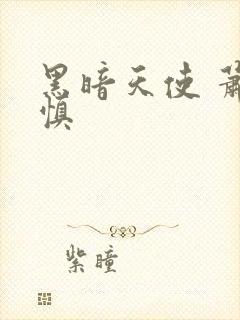 黑暗天使
慎
紫瞳